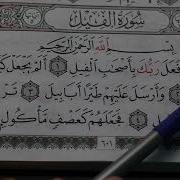 سُورَةُ الفِيلِ
بِسْمِ ٱللَّهِ ٱلرَّحْمَٰنِ ٱلرَّحِيمِ
فَعَلَ رَبُّكَ بِأَصْحَٰبِ ٱلْفِيلِ ١ أَلَمْ يَجْعَلْ
٢ وَأَرْسَلَ عَلَيْهِمْ طَيْرًا أَبَابِيلَ ٣
٤ فَجَعَلَهُمْ كَعَصْفٍ مَّأْكُولٍ
٦٠١